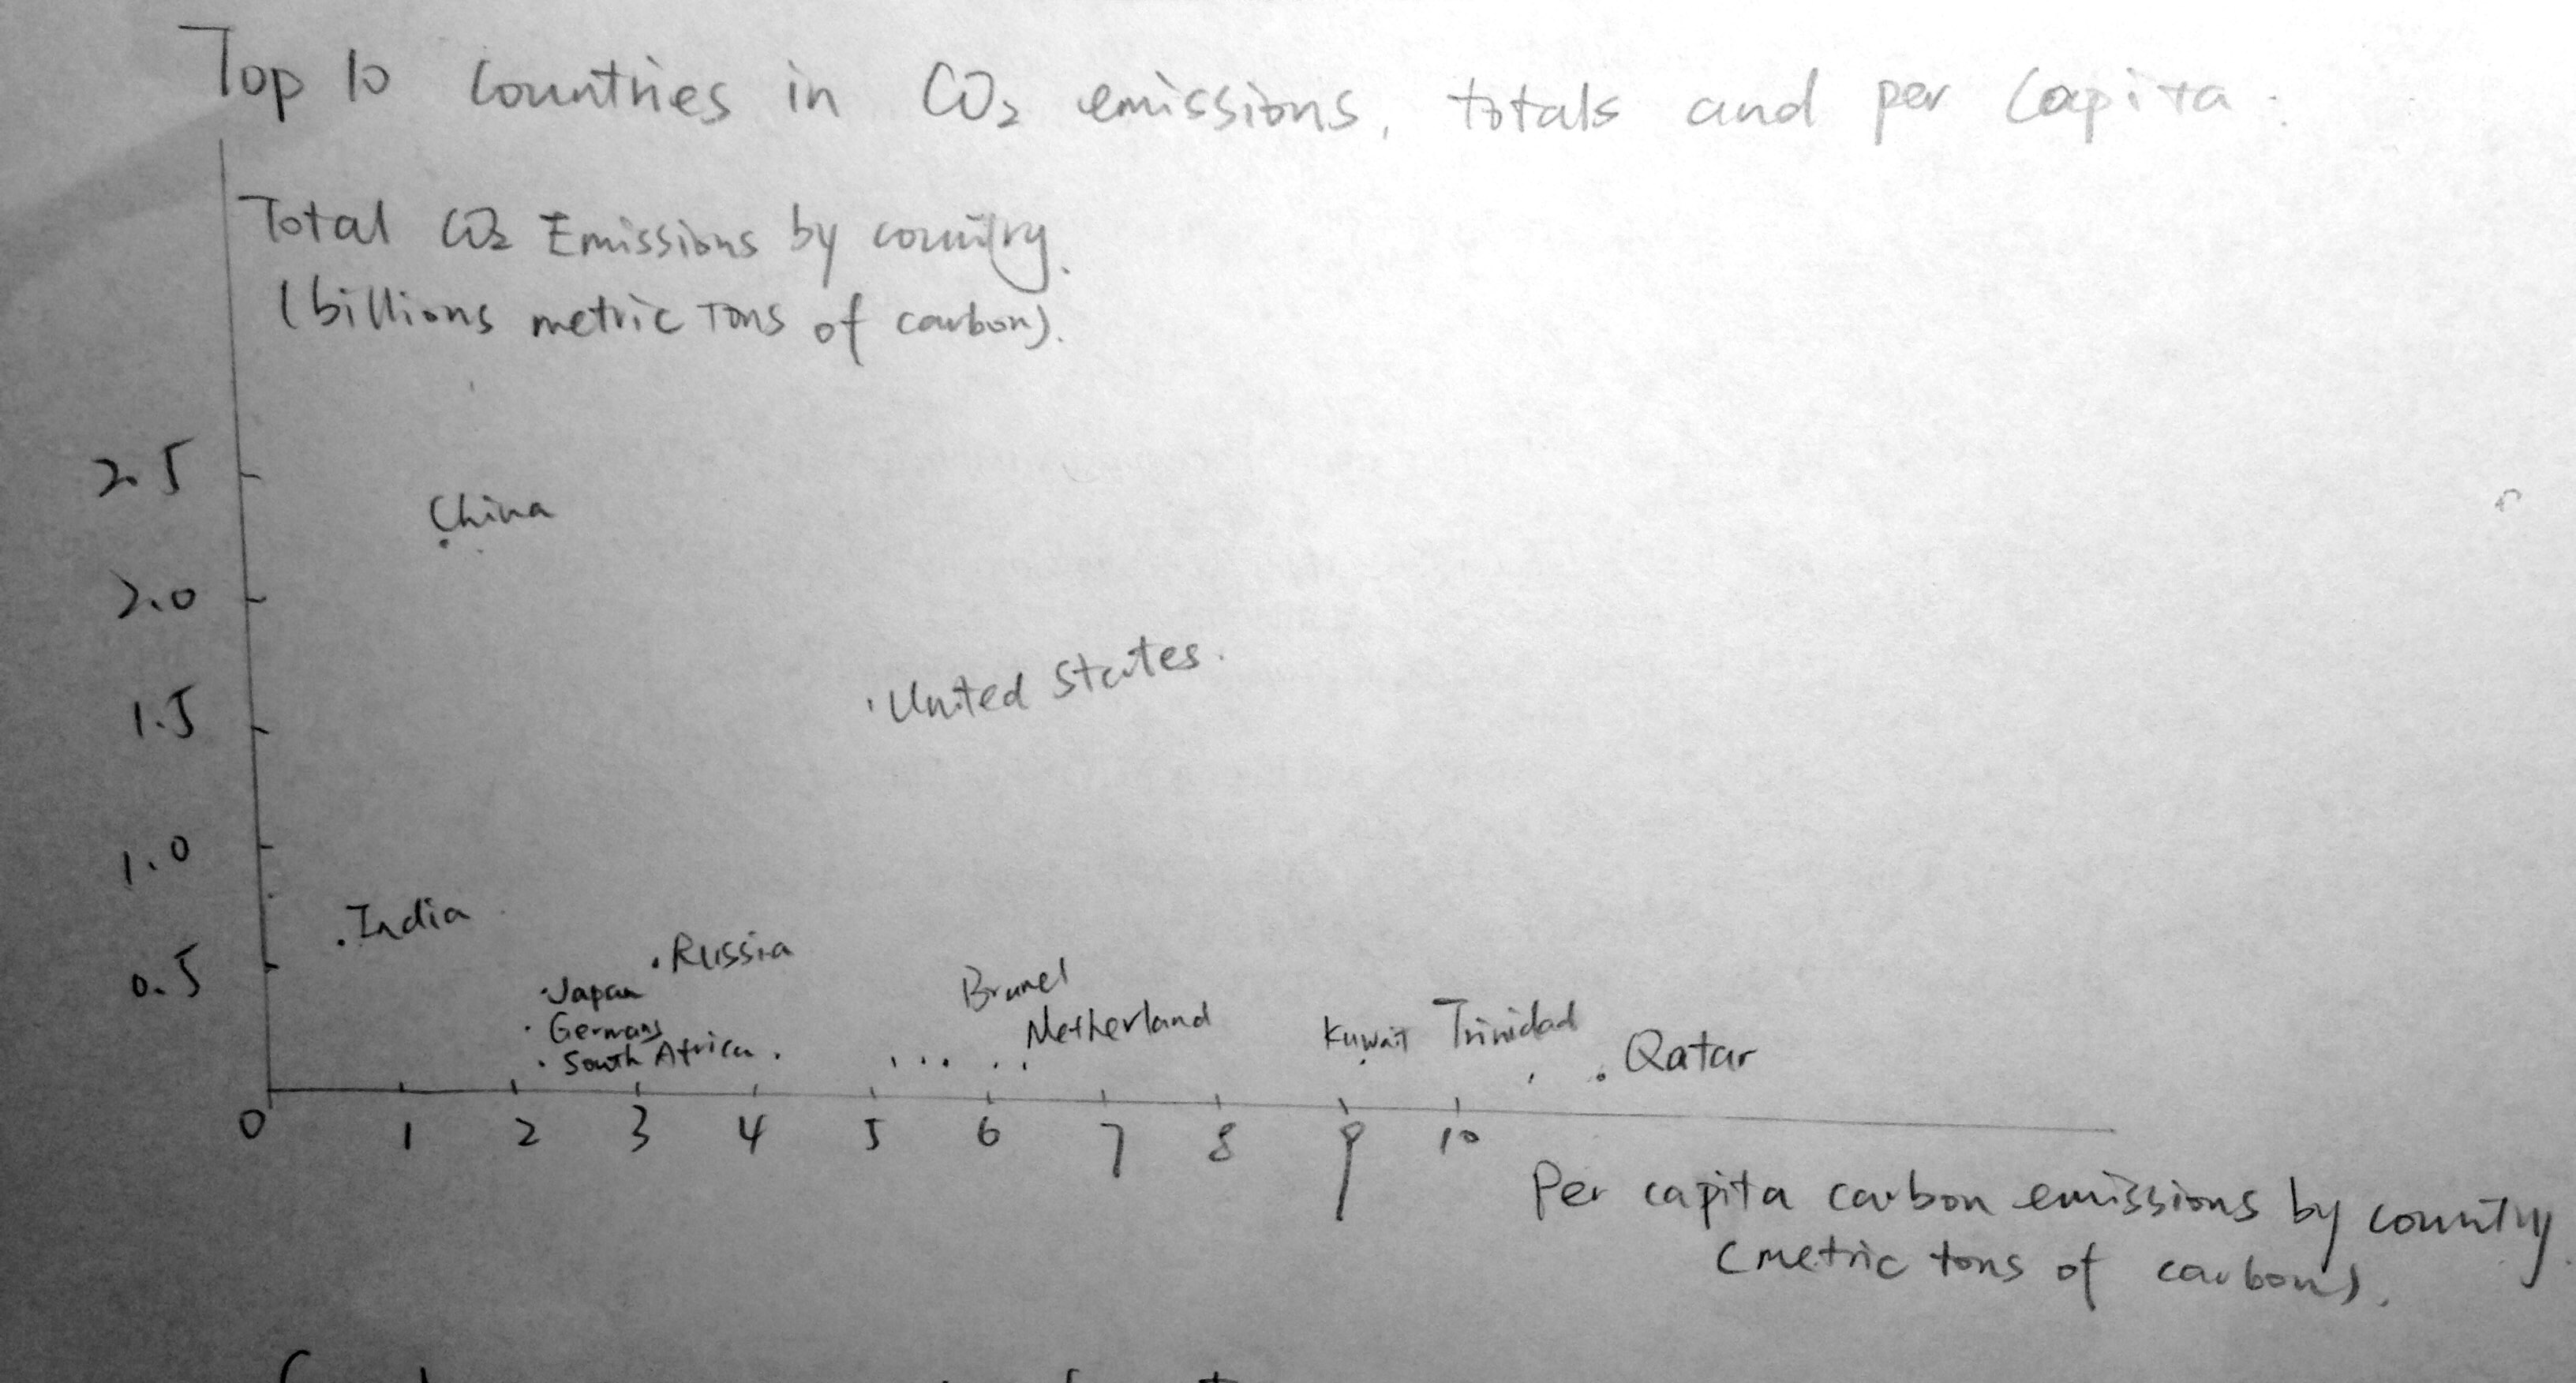 Top 10 Countries in CO2 emissions, totals and per Capita.
Total CO2 Emissions by country.
(billions metric tons of carbon).
2.5
China
2.0
United States.
1.5
1.0
India
Russia
0.5
Japan
Brunel
Germany
Netherland
South Africa
Kuwait
Trinidad
Qatar
0 1 2 3 4 5 6 7 8 9 10
Per capita carbon emissions by country.
(metric tons of carbon).